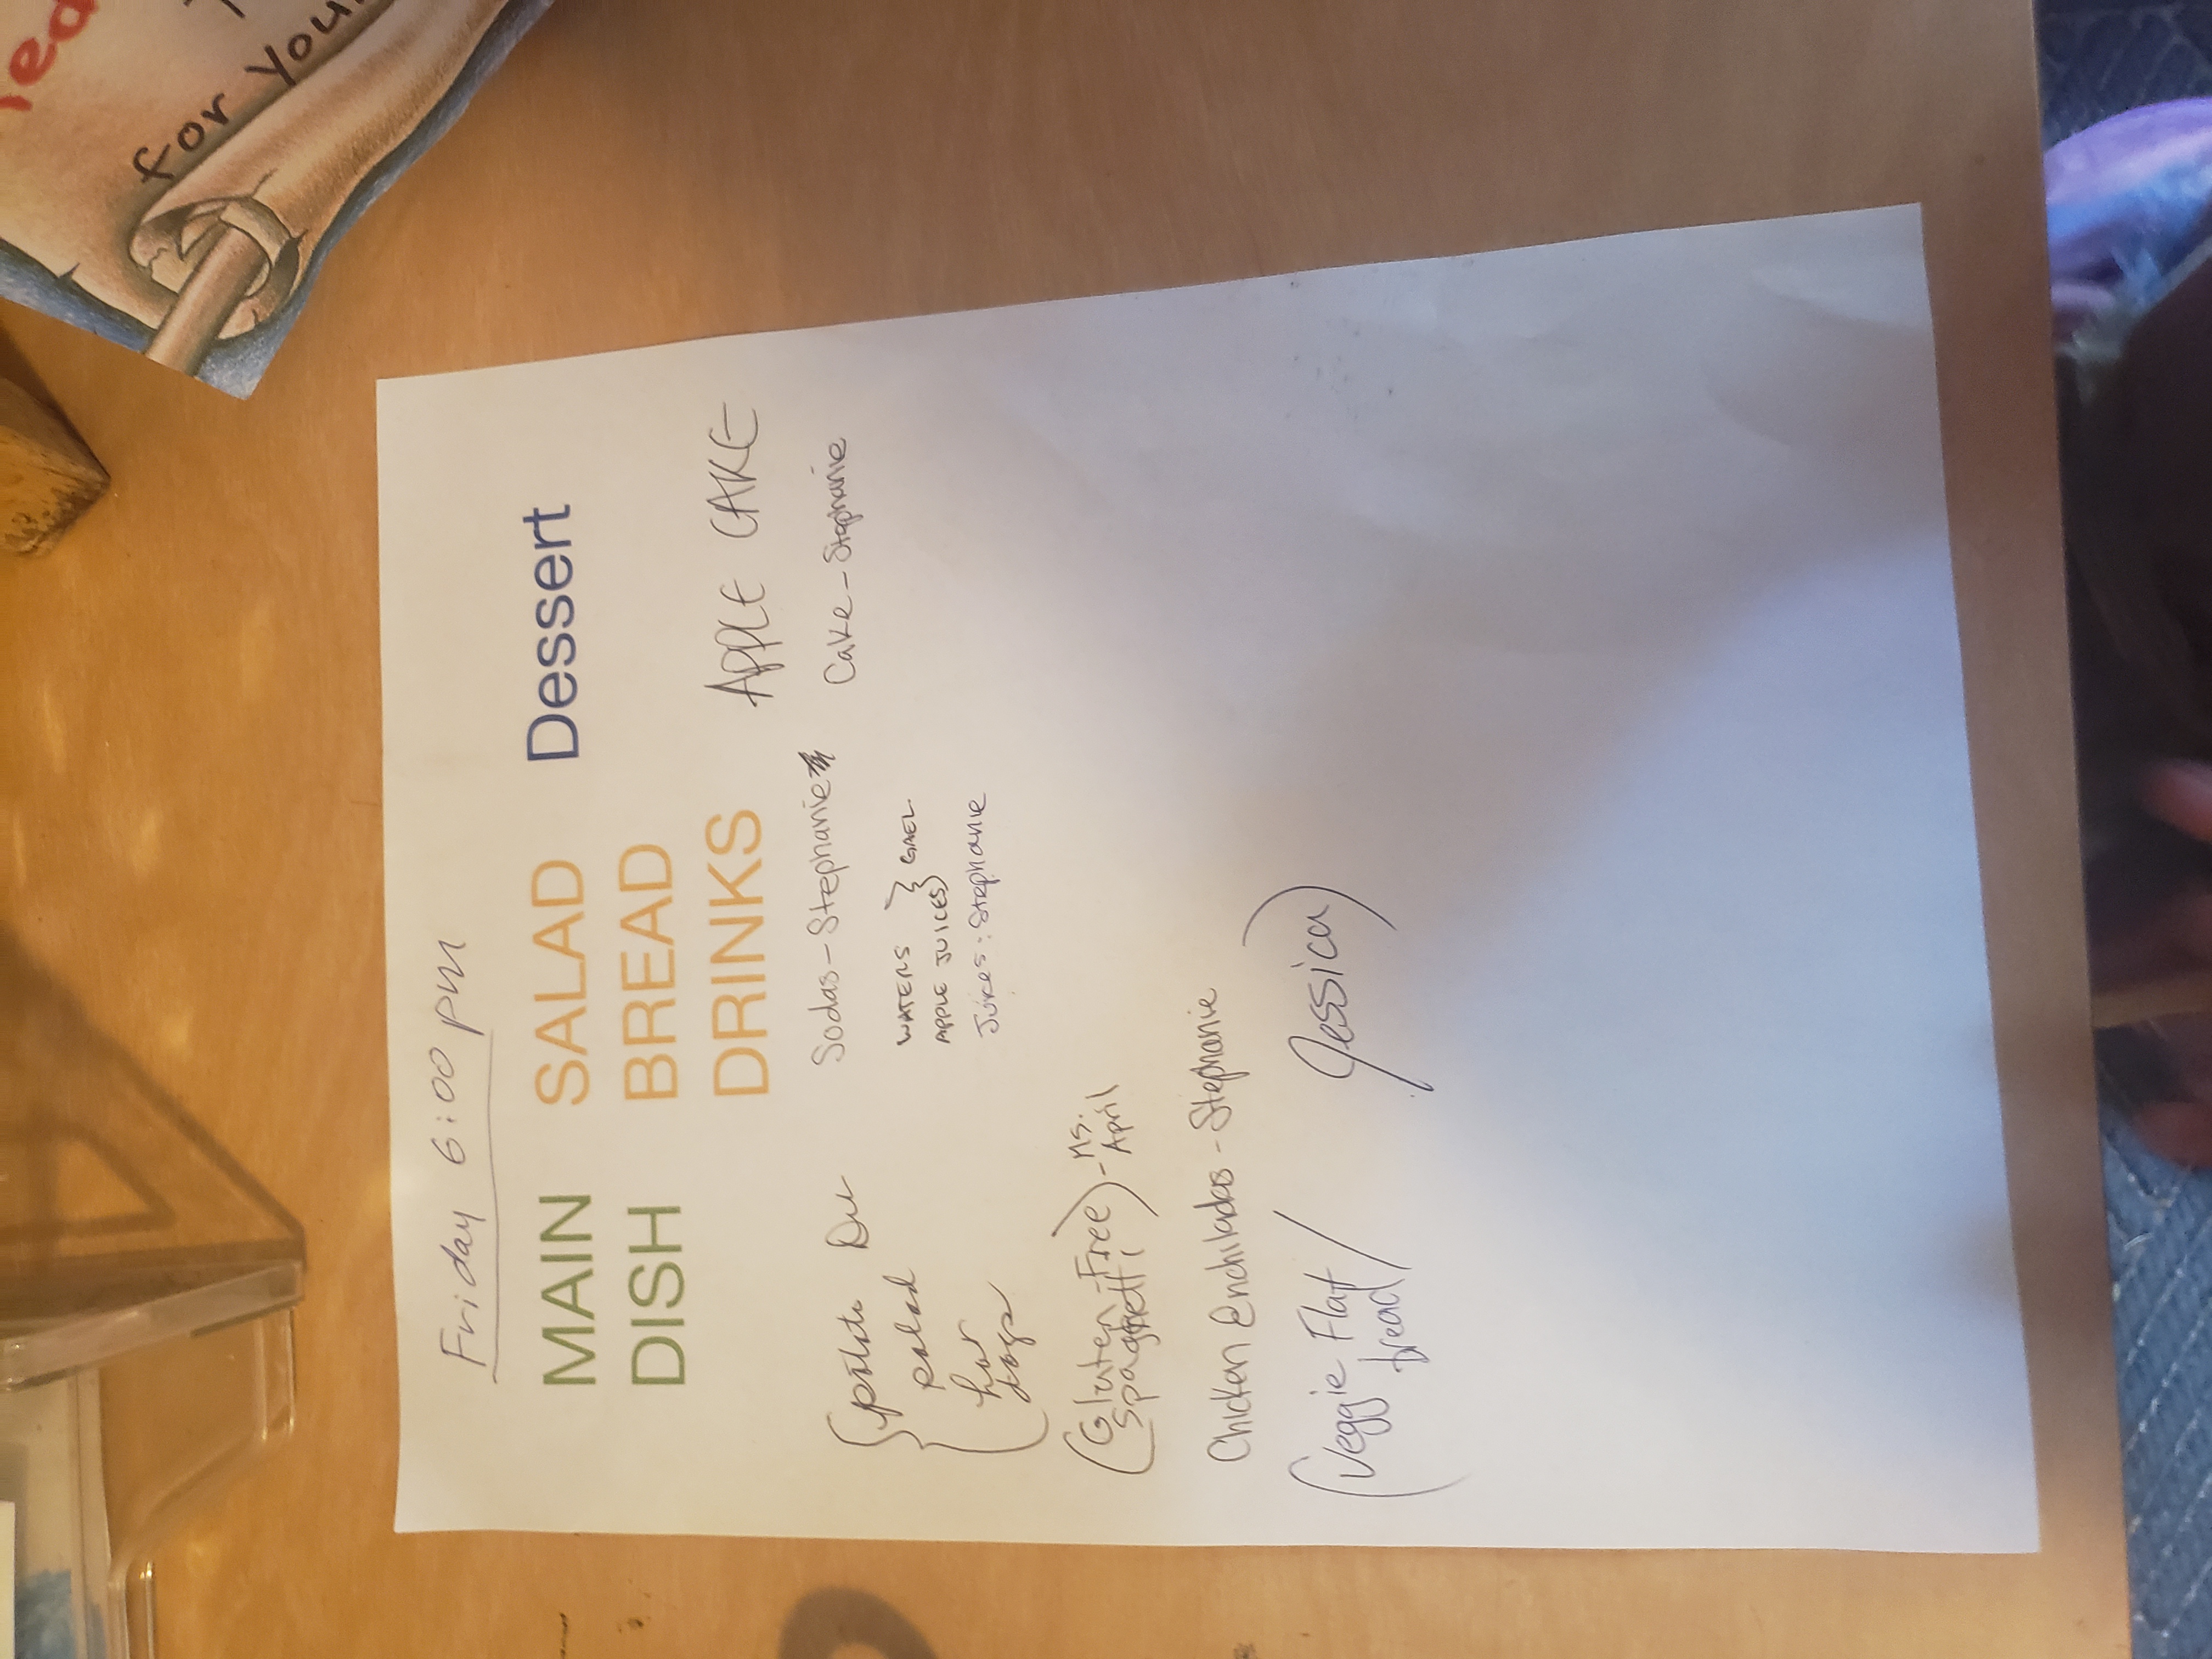 Friday 6:00 pm
MAIN DISH
SALAD
BREAD
DRINKS
Dessert
potato
salad
hot
dogs
(Gluten Free) - Ms.
Spaghetti April
Chicken Enchiladas - Stephanie
(Veggie Flat
bread / Jessica)
Sodas - Stephanie
WATERS
APPLE JUICES } GAEL
Juices: Stephanie
APPLE CAKE
Cake - Stephanie
for your